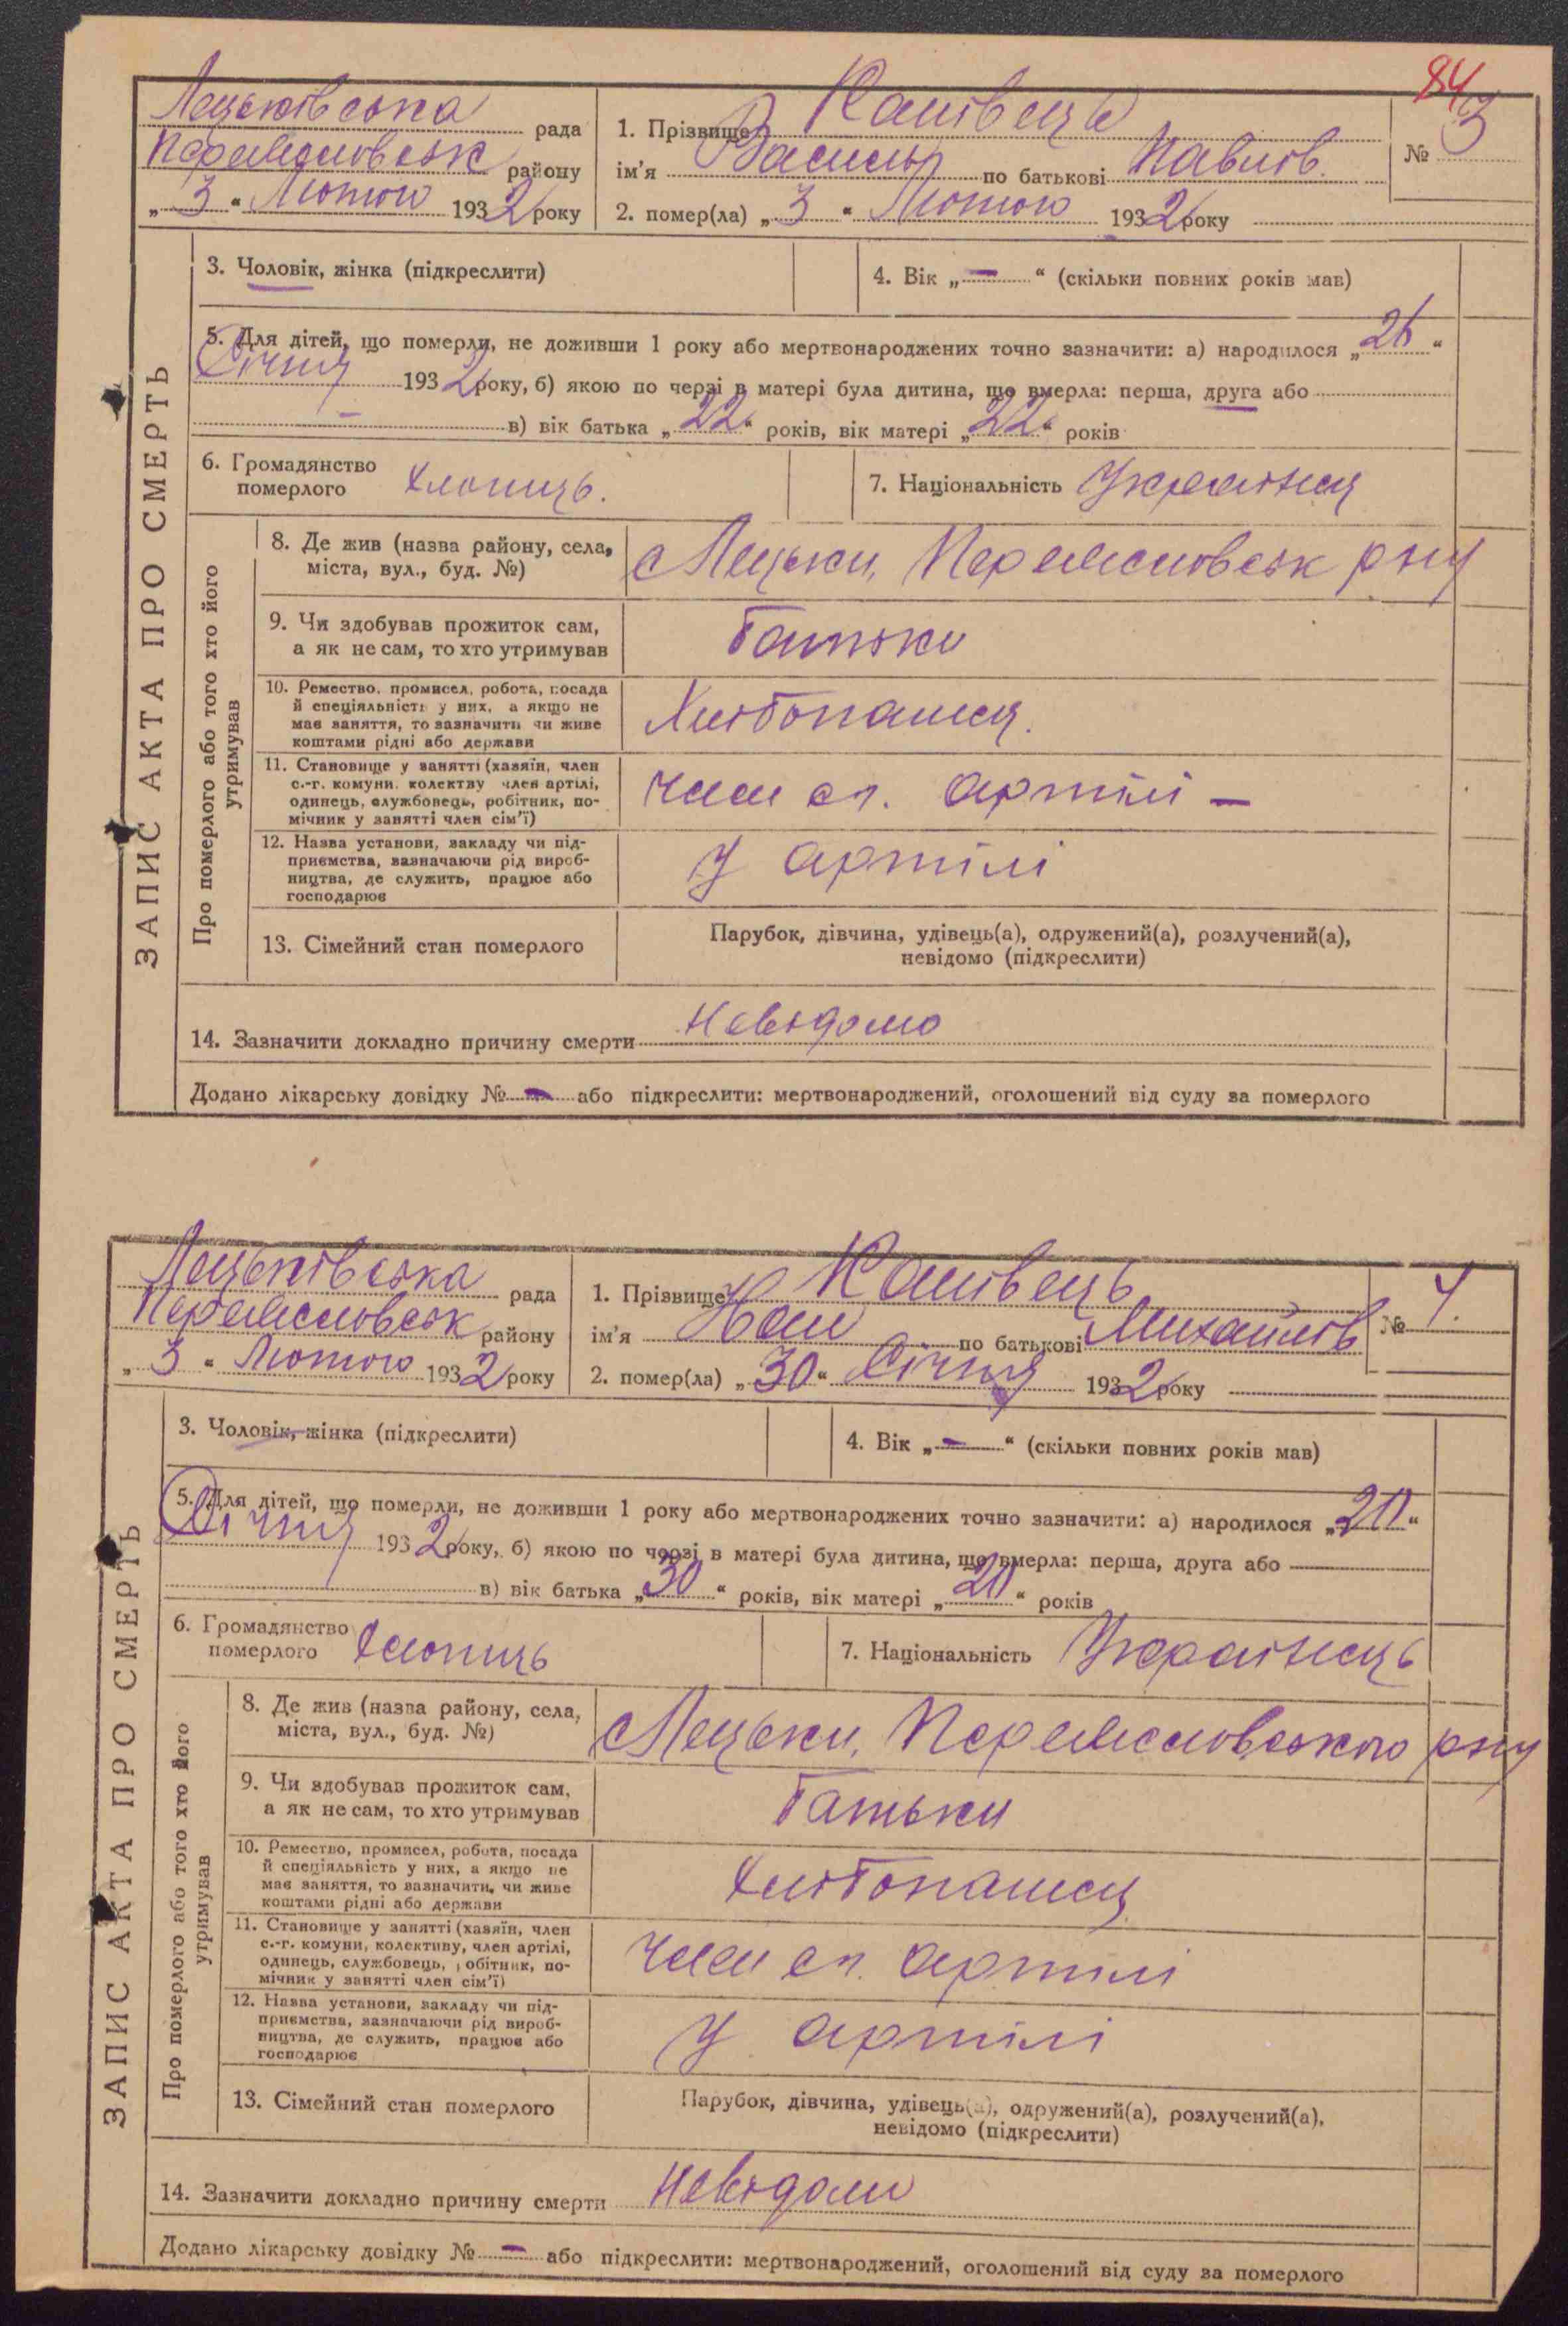 84
Лецьківська рада
Переяславськ району
„ 3 “ Лютого 1932 року
1. Прізвище Кашівець
ім'я Василь по батькові Павлов.
2. помер(ла) „ 3 “ Лютого 1932 року
№ 3
ЗАПИС АКТА ПРО СМЕРТЬ
3. Чоловік, жінка (підкреслити)
4. Вік „ — “ (скільки повних років мав)
5. Для дітей, що померли, не доживши 1 року або мертвонароджених точно зазначити: а) народилося „ 26 “
Січня 1932 року, б) якою по черзі в матері була дитина, що вмерла: перша, друга або
— в) вік батька „ 22 “ років, вік матері „ 22 “ років
6. Громадянство
померлого хлопиць.
7. Національність Українця
Про померлого або того хто його
утримував
8. Де жив (назва району, села,
міста, вул., буд. №)
с Лецьки, Переяславськ рну
9. Чи здобував прожиток сам,
а як не сам, то хто утримував
Батьки
10. Ремество, промисел, робота, посада
й спеціяльність у них, а якщо не
має заняття, то зазначити чи живе
коштами рідні або держави
Хліборашця.
11. Становище у занятті (хазяїн, член
с.-г. комуни, колектву член артілі,
одинець, службовець, робітник, по-
мічник у занятті член сім'ї)
член сг. артілі —
12. Назва установи, закладу чи під-
приємства, зазначаючи рід вироб-
ництва, де служить, працює або
господарює
У артілі
13. Сімейний стан померлого
Парубок, дівчина, удівець(а), одружений(а), розлучений(а),
невідомо (підкреслити)
14. Зазначити докладно причину смерти Невідомо
Додано лікарську довідку № — або підкреслити: мертвонароджений, оголошений від суду за померлого
Лецьківська рада
Переяславськ району
„ 3 “ Лютого 1932 року
1. Прізвище Кашівець
ім'я по батькові Михайлів
2. помер(ла) „ 30 “ Січня 1932 року
№ 4.
ЗАПИС АКТА ПРО СМЕРТЬ
3. Чоловік, жінка (підкреслити)
4. Вік „ — “ (скільки повних років мав)
5. Для дітей, що померли, не доживши 1 року або мертвонароджених точно зазначити: а) народилося „ 20 “
Січня 1932 року, б) якою по черзі в матері була дитина, що вмерла: перша, друга або
в) вік батька „ 30 “ років, вік матері „ 20 “ років
6. Громадянство
померлого хлопиць
7. Національність Українець
Про померлого або того хто його
утримував
8. Де жив (назва району, села,
міста, вул., буд. №)
с Лецьки, Переяславського рну
9. Чи здобував прожиток сам,
а як не сам, то хто утримував
Батьки
10. Ремество, промисел, робота, посада
й спеціяльність у них, а якщо не
має заняття, то зазначити, чи живе
коштами рідні або держави
Хлібопашця
11. Становище у занятті (хазяїн, член
с.-г. комуни, колективу, член артілі,
одинець, службовець, робітник, по-
мічник у занятті член сім'ї)
член сг. артілі
12. Назва установи, закладу чи під-
приємства, зазначаючи рід вироб-
ництва, де служить, працює або
господарює
У артілі
13. Сімейний стан померлого
Парубок, дівчина, удівець(а), одружений(а), розлучений(а),
невідомо (підкреслити)
14. Зазначити докладно причину смерти Невідомо
Додано лікарську довідку № — або підкреслити: мертвонароджений, оголошений від суду за померлого